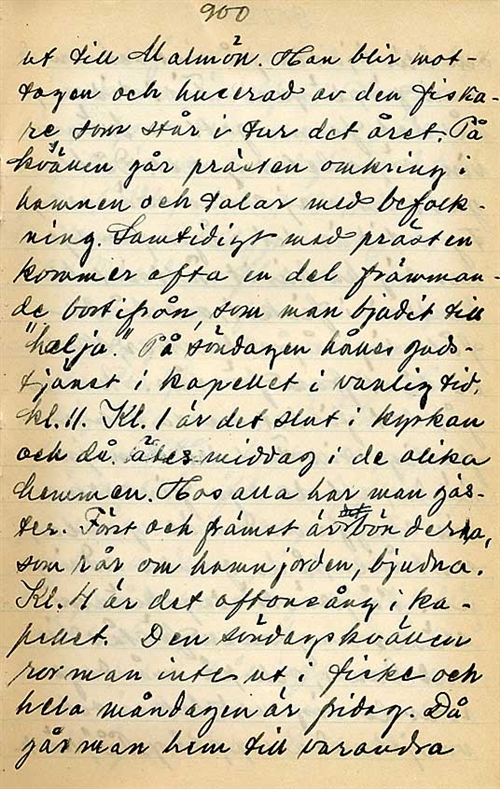 900
ut till Malmön. Han blir mot-
tagen och huserad av den fiska-
re som står i tur det året. På
kvällen går prästen omkring i
hamnen och talar med befolk-
ning. Samtidigt med prästen
kommer ofta en del främman-
de bortifrån, som man bjudit till
"hälja." På söndagen hålles guds-
tjänst i kapellet i vanlig tid,
kl. 11. Kl. 1 är det slut i kyrkan
och då ätes middag i de olika
hemmen. Hos alla har man gäs-
ter. Först och främst är bönderna,
som rår om hamnjorden, bjudna.
Kl. 4 är det aftonsång i ka-
pellet. Den söndagskvällen
ror man inte ut i fiske och
hela måndagen är fridag. Då
går man hem till varandra